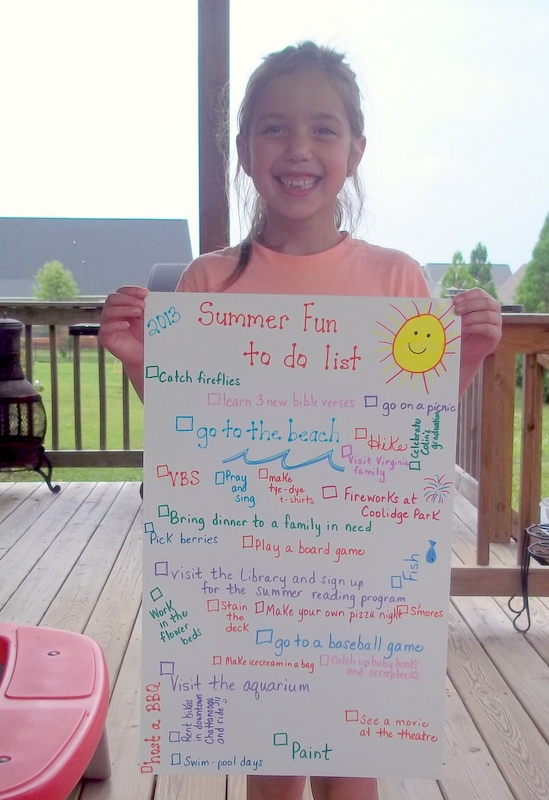 2013
Summer Fun
to do list
Catch fireflies
learn 3 new bible verses
go on a picnic
go to the beach
Hike
Celebrate
Colin's
graduation
Visit Virginia
family
VBS
Pray
and
sing
make
tye-dye
t-shirts
Fireworks at
Coolidge Park
Bring dinner to a family in need
Pick berries
Play a board game
Fish
visit the Library and sign up
for the summer reading program
Work
in the
flower
beds
Stain
the
deck
Make your own pizza night
Smores
go to a baseball game
Make icecream in a bag
Catch up baby books
and scrapbooks
Visit the aquarium
host a BBQ
Rent bikes
in downtown
Chattanooga
and ride!!
See a movie
at the theatre
Paint
Swim-pool days